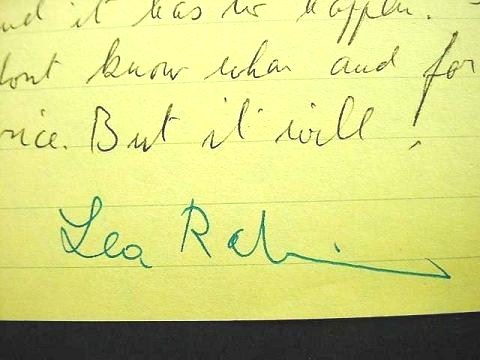 nd it has to happen.
dont know when and for
rice. But it will!
Lea Rabin